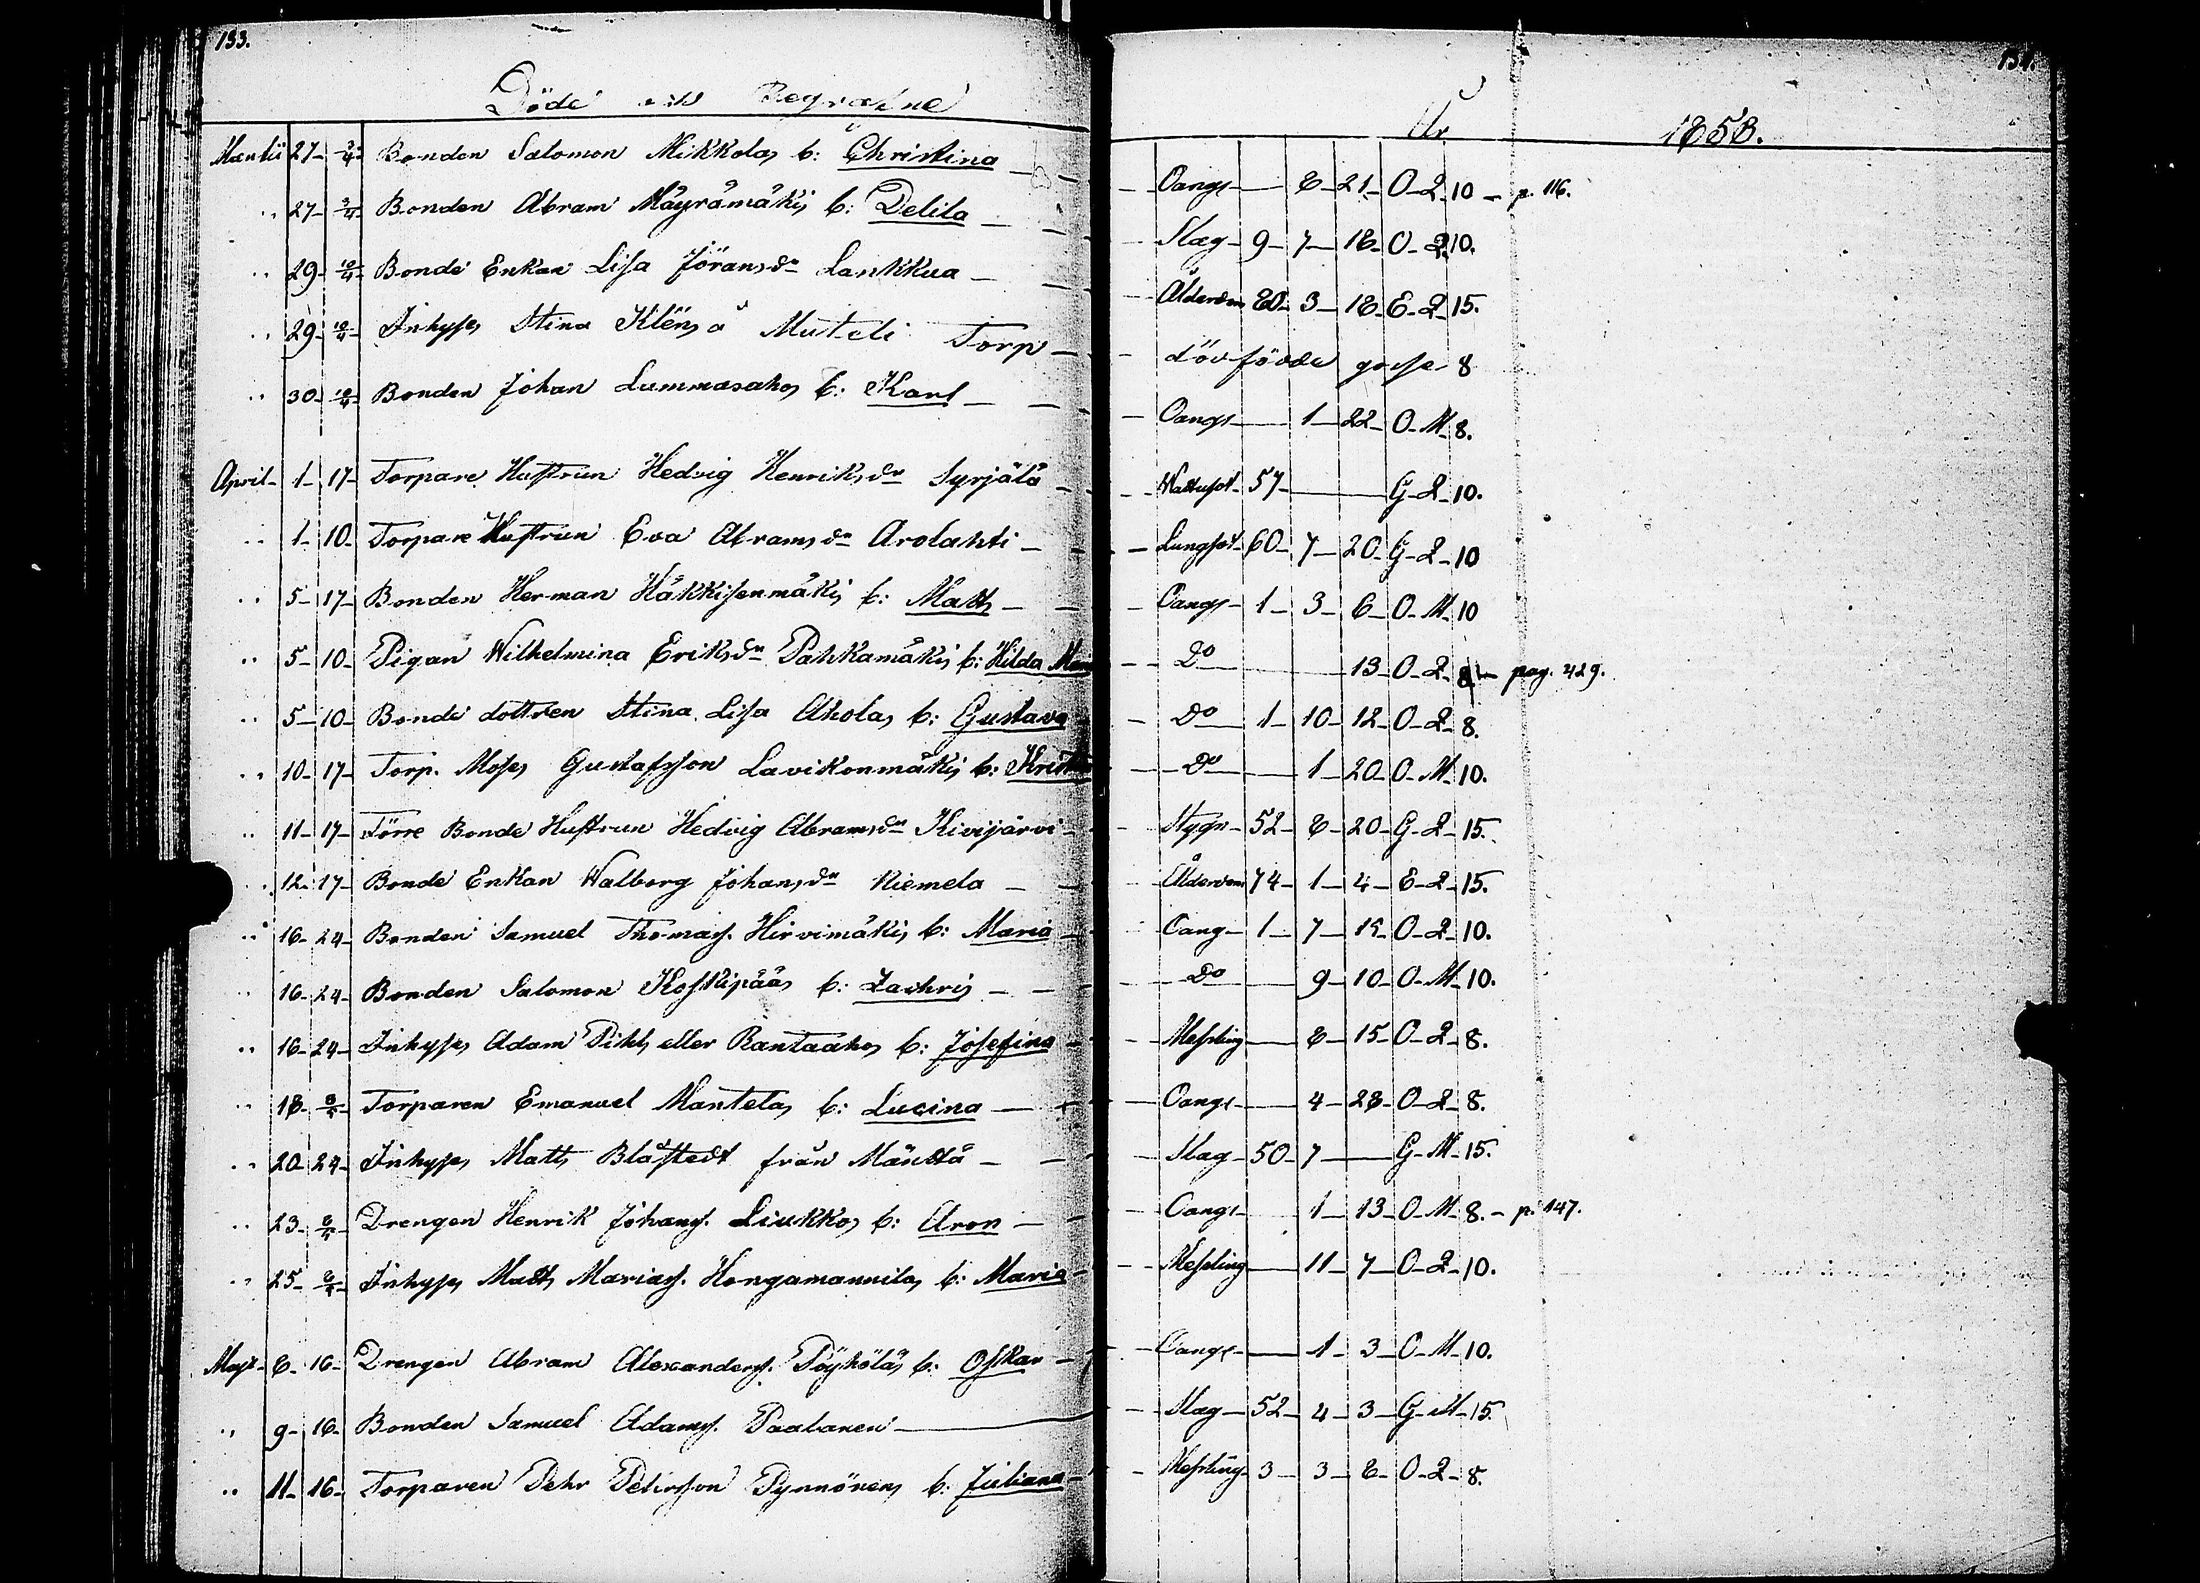 133. 134.
Döde och Begrafne År 1858.
Martii 27 2/4 Bonden Salomon Mikkolas b: Christina Oangs 8 21 O Q 10 p. 116.
" 27 2/4 Bonden Abram Mäyrämäkis b: Delila Slag 9 7 18 O Q 10.
" 29 10/4 Bonde Enkan Lisa Jöransdr Lankkua Ålderdom 80 3 18 E Q 15.
" 29 10/4 Inhyses Stina Kléns å Musteli Torp dödfödde gosse 8
" 30 10/4 Bonden Johan Lummasahos b: Karl Oangs 1 22 O M 8.
April 1 17 Torpare Hustrun Hedvig Henriksdr Syrjälä Wattusot 57 G Q 10.
" 1 10 Torpare Hustrun Eva Abramsdr Arolahti Lungsot 60 7 20 G Q 10
" 5 17 Bonden Herman Häkkisenmäkis b: Matts Oangs 1 3 6 O M 10
" 5 10 Pigan Wilhelmina Eriksdr Pahkamäkis b: Hilda Do 13 O Q 8 pag. 429.
" 5 10 Bonde dottren Stina Lisa Aholas b: Gustava Do 1 10 12 O Q 8.
" 10 17 Torp. Moses Gustafsson Lavikonmäkis b: Do 1 20 O M 10.
" 11 17 Förre Bonde Hustrun Hedvig Abramsdr Kivijärvi Stygn 52 8 20 G Q 15.
" 12 17 Bonde Enkan Walborg Johansdr Niemela Ålderdom 74 1 4 E Q 15.
" 16 24 Bonden Samuel Thomass. Hirvimäkis b: Maria Oang 1 7 15 O Q 10.
" 16 24 Bonden Salomon Koskipääs b: Zachris Do 9 10 O M 10.
" 16 24 Inhyses Adam Pihls eller Rantaahos b: Josefina Messling 8 15 O Q 8.
" 18 8/5 Torparen Emanuel Mantelas b: Lucina Oangs 4 28 O Q 8.
" 20 24 Inhyses Matts Blåstedt från Mänttä Slag 50 7 G M 15.
" 23 2/5 Drengen Henrik Johans. Liukkos b: Aron Oangs 1 13 O M 8. p. 147.
" 25 2/5 Inhyses Matts Mariass. Hongamannilas b: Maria Messling 11 7 O Q 10.
Maji 8 16 Drengen Abram Alexanders. Pöyhöläs b: Oskar Oangs 1 3 O M 10.
" 9 16 Bonden Samuel Adams. Paalanen Slag 52 4 3 G M 15.
" 11 16 Torparen Pehr Petersson Pynnönens b: Juliana Messling 3 3 8 O Q 8.